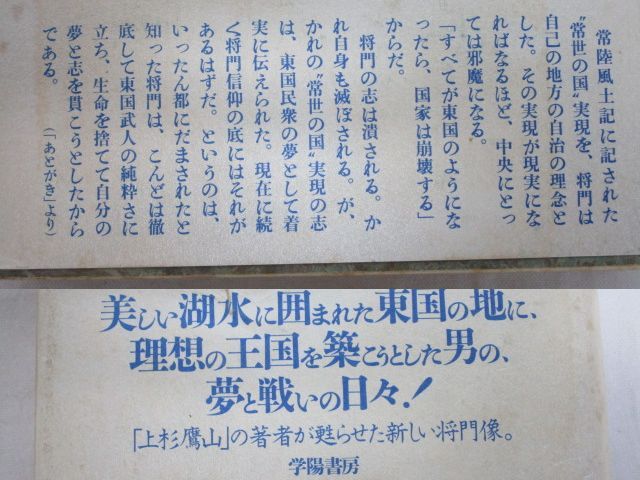 常陸風土記に記された
“常世の国”実現を、将門は
自己の地方の自治の理念と
した。その実現が現実にな
ればなるほど、中央にとっ
ては邪魔になる。
「すべてが東国のようにな
ったら、国家は崩壊する」
からだ。
将門の志は潰される。か
れ自身も滅ぼされる。が、
かれの“常世の国”実現の志
は、東国民衆の夢として着
実に伝えられた。現在に続
く将門信仰の底にはそれが
あるはずだ。というのは、
いったん都にだまされたと
知った将門は、こんどは徹
底して東国武人の純粋さに
立ち、生命を捨てて自分の
夢と志を貫こうとしたから
である。
（「あとがき」より）
美しい湖水に囲まれた東国の地に、
理想の王国を築こうとした男の、
夢と戦いの日々！
「上杉鷹山」の著者が甦らせた新しい将門像。
学陽書房